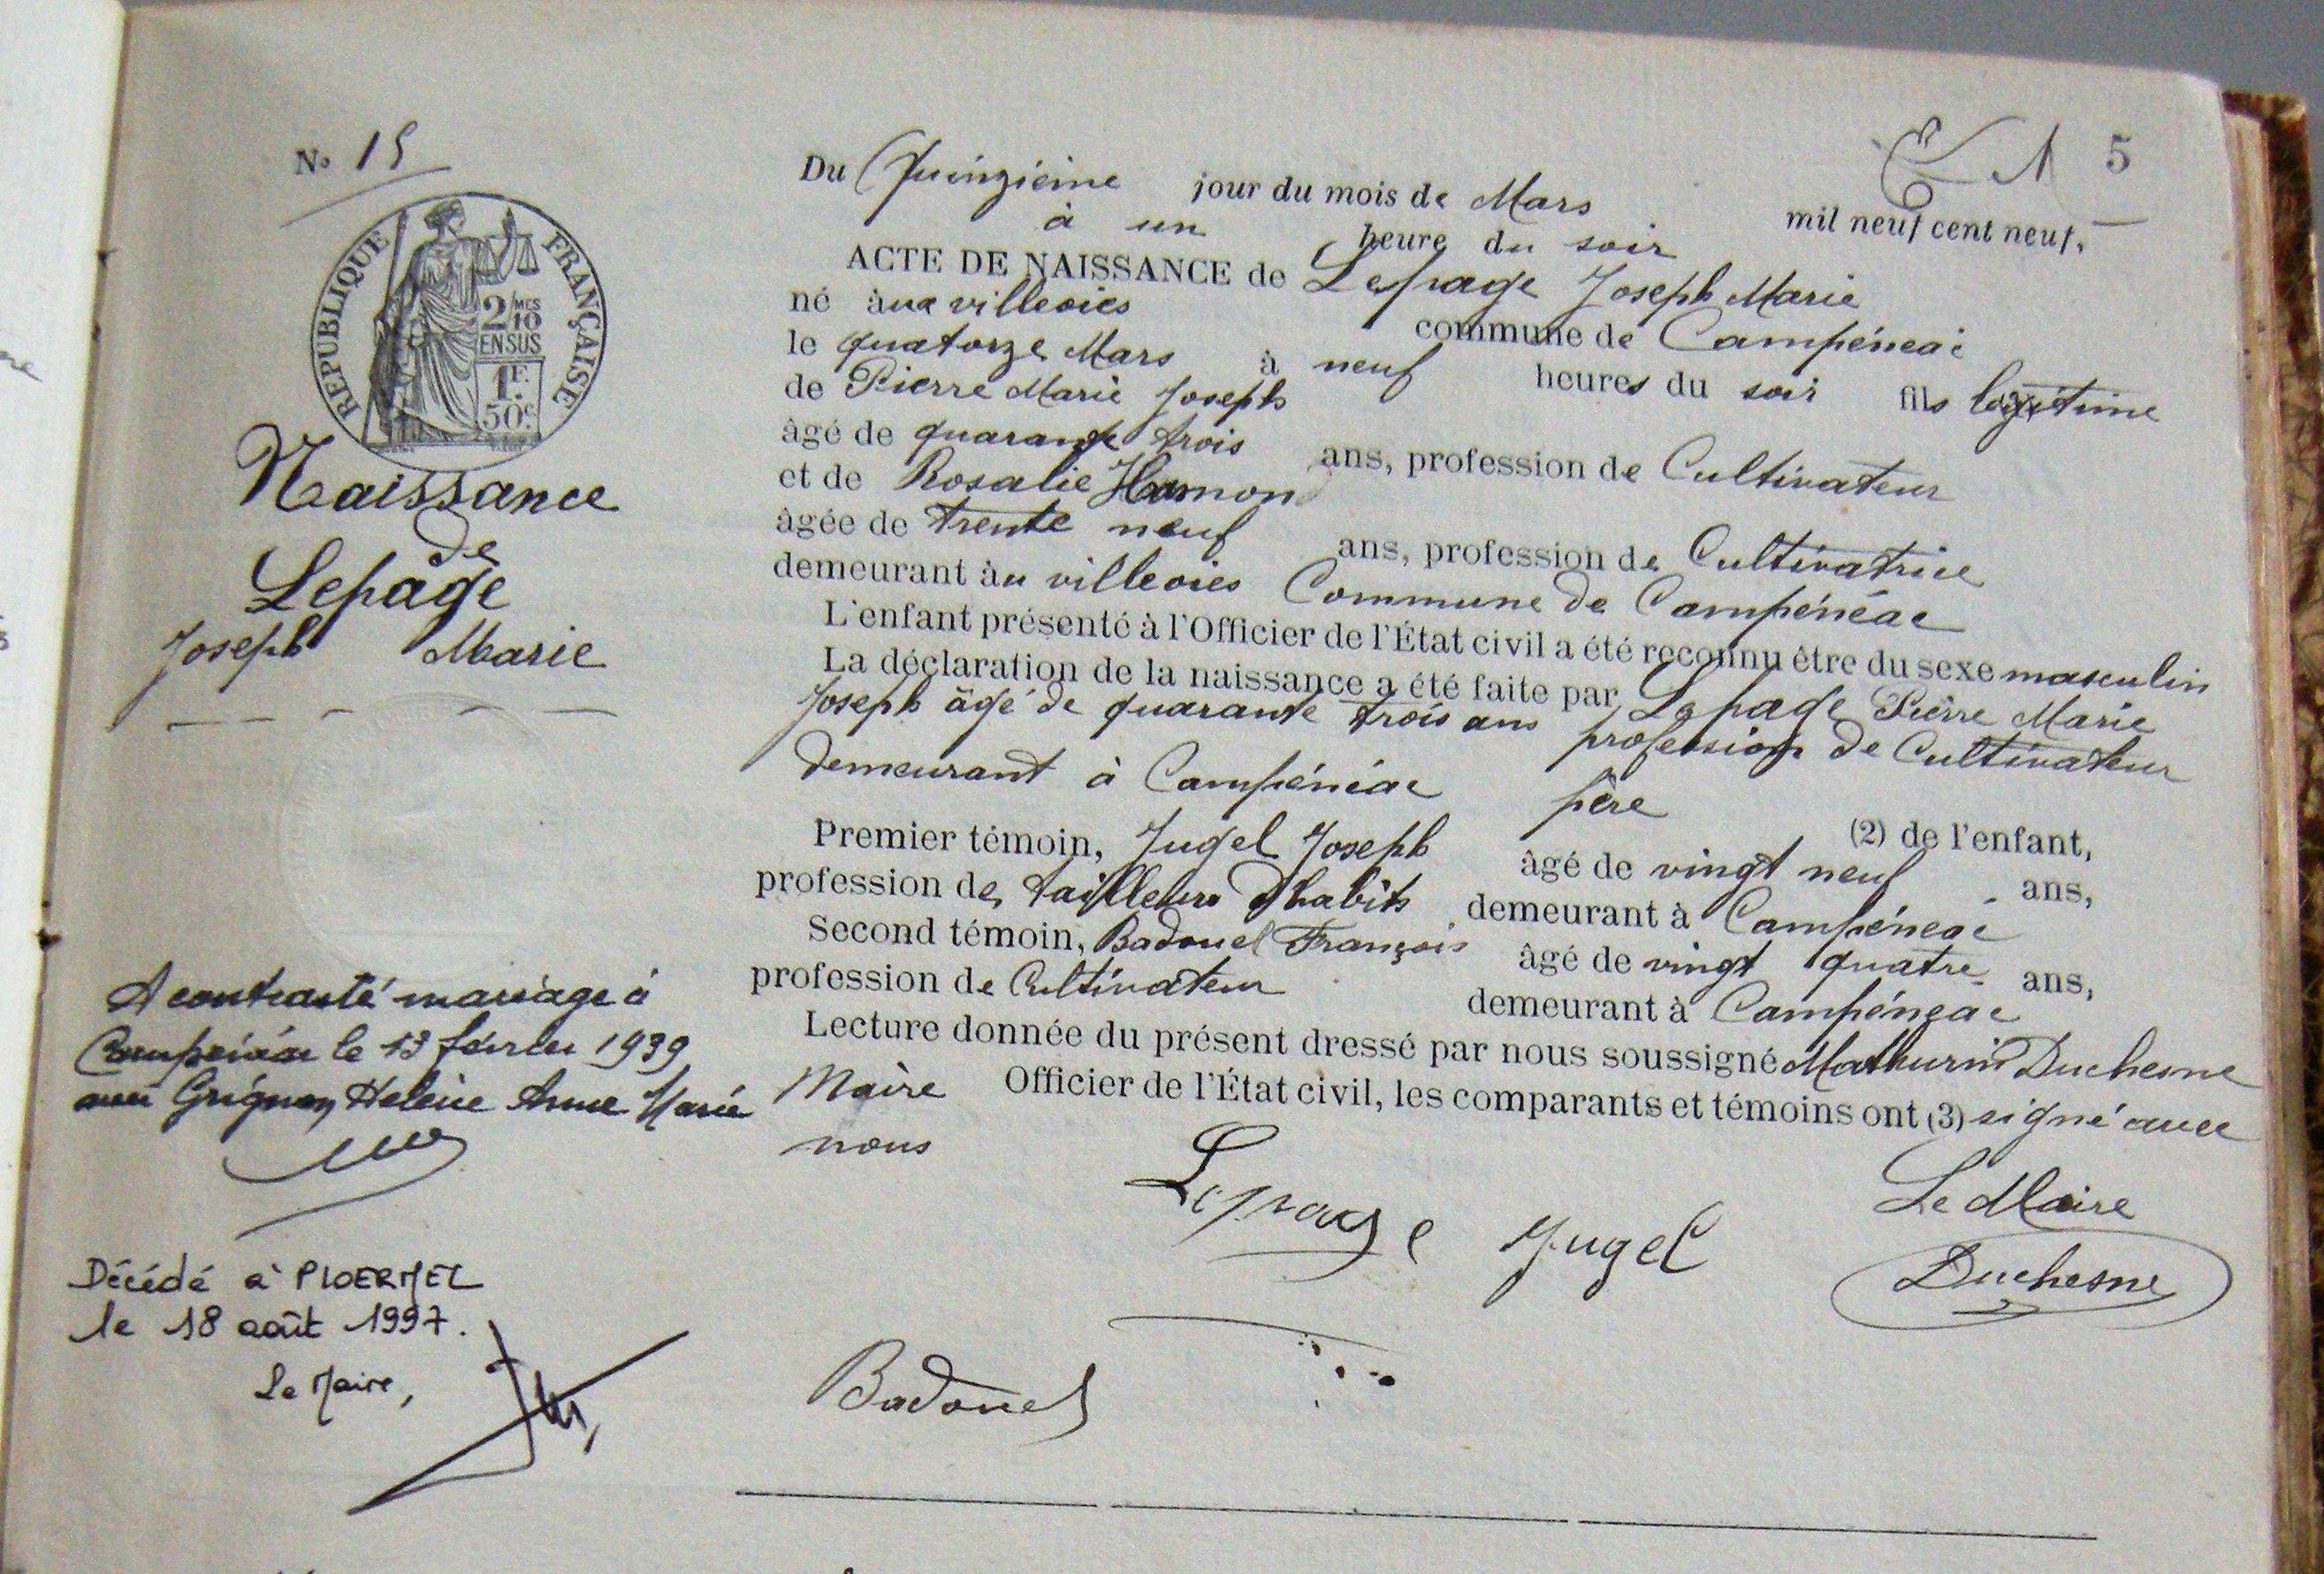 No 15
REPUBLIQUE FRANÇAISE
2/10 MES
EN SUS
1F.
50c.
Naissance
de
Lepage
Joseph Marie
A contracté mariage à
Campénéac le 13 février 1939
avec Grignon Helène Anne Marie
Décédé à PLOERMEL
le 18 août 1997.
Le Maire,
5
Du Quinzième jour du mois de Mars mil neuf cent neuf,
à un heure du soir
ACTE DE NAISSANCE de Lepage Joseph Marie
né àux villeoies commune de Campéneac
le quatorze Mars à neuf heures du soir fils légitime
de Pierre Marie Joseph
âgé de quarante trois ans, profession de Cultivateur
et de Rosalie Hamon
âgée de trente neuf ans, profession de Cultivatrice
demeurant àu villeoies Commune de Campénéac
L'enfant présenté à l'Officier de l'État civil a été reconnu être du sexe masculin
La déclaration de la naissance a été faite par Lepage Pierre Marie
Joseph âgé de quarante trois ans profession de Cultivateur
demeurant à Campénéac père (2) de l'enfant,
Premier témoin, Jugel Joseph âgé de vingt neuf ans,
profession de tailleur d'habits demeurant à Campéneac
Second témoin, Badouel François âgé de vingt quatre ans,
profession de Cultivateur demeurant à Campéneac
Lecture donnée du présent dressé par nous soussigné Mathurin Duchesne
Maire Officier de l'État civil, les comparants et témoins ont (3) signé avec
nous
Lepage Jugel Le Maire
Duchesne
Badouel